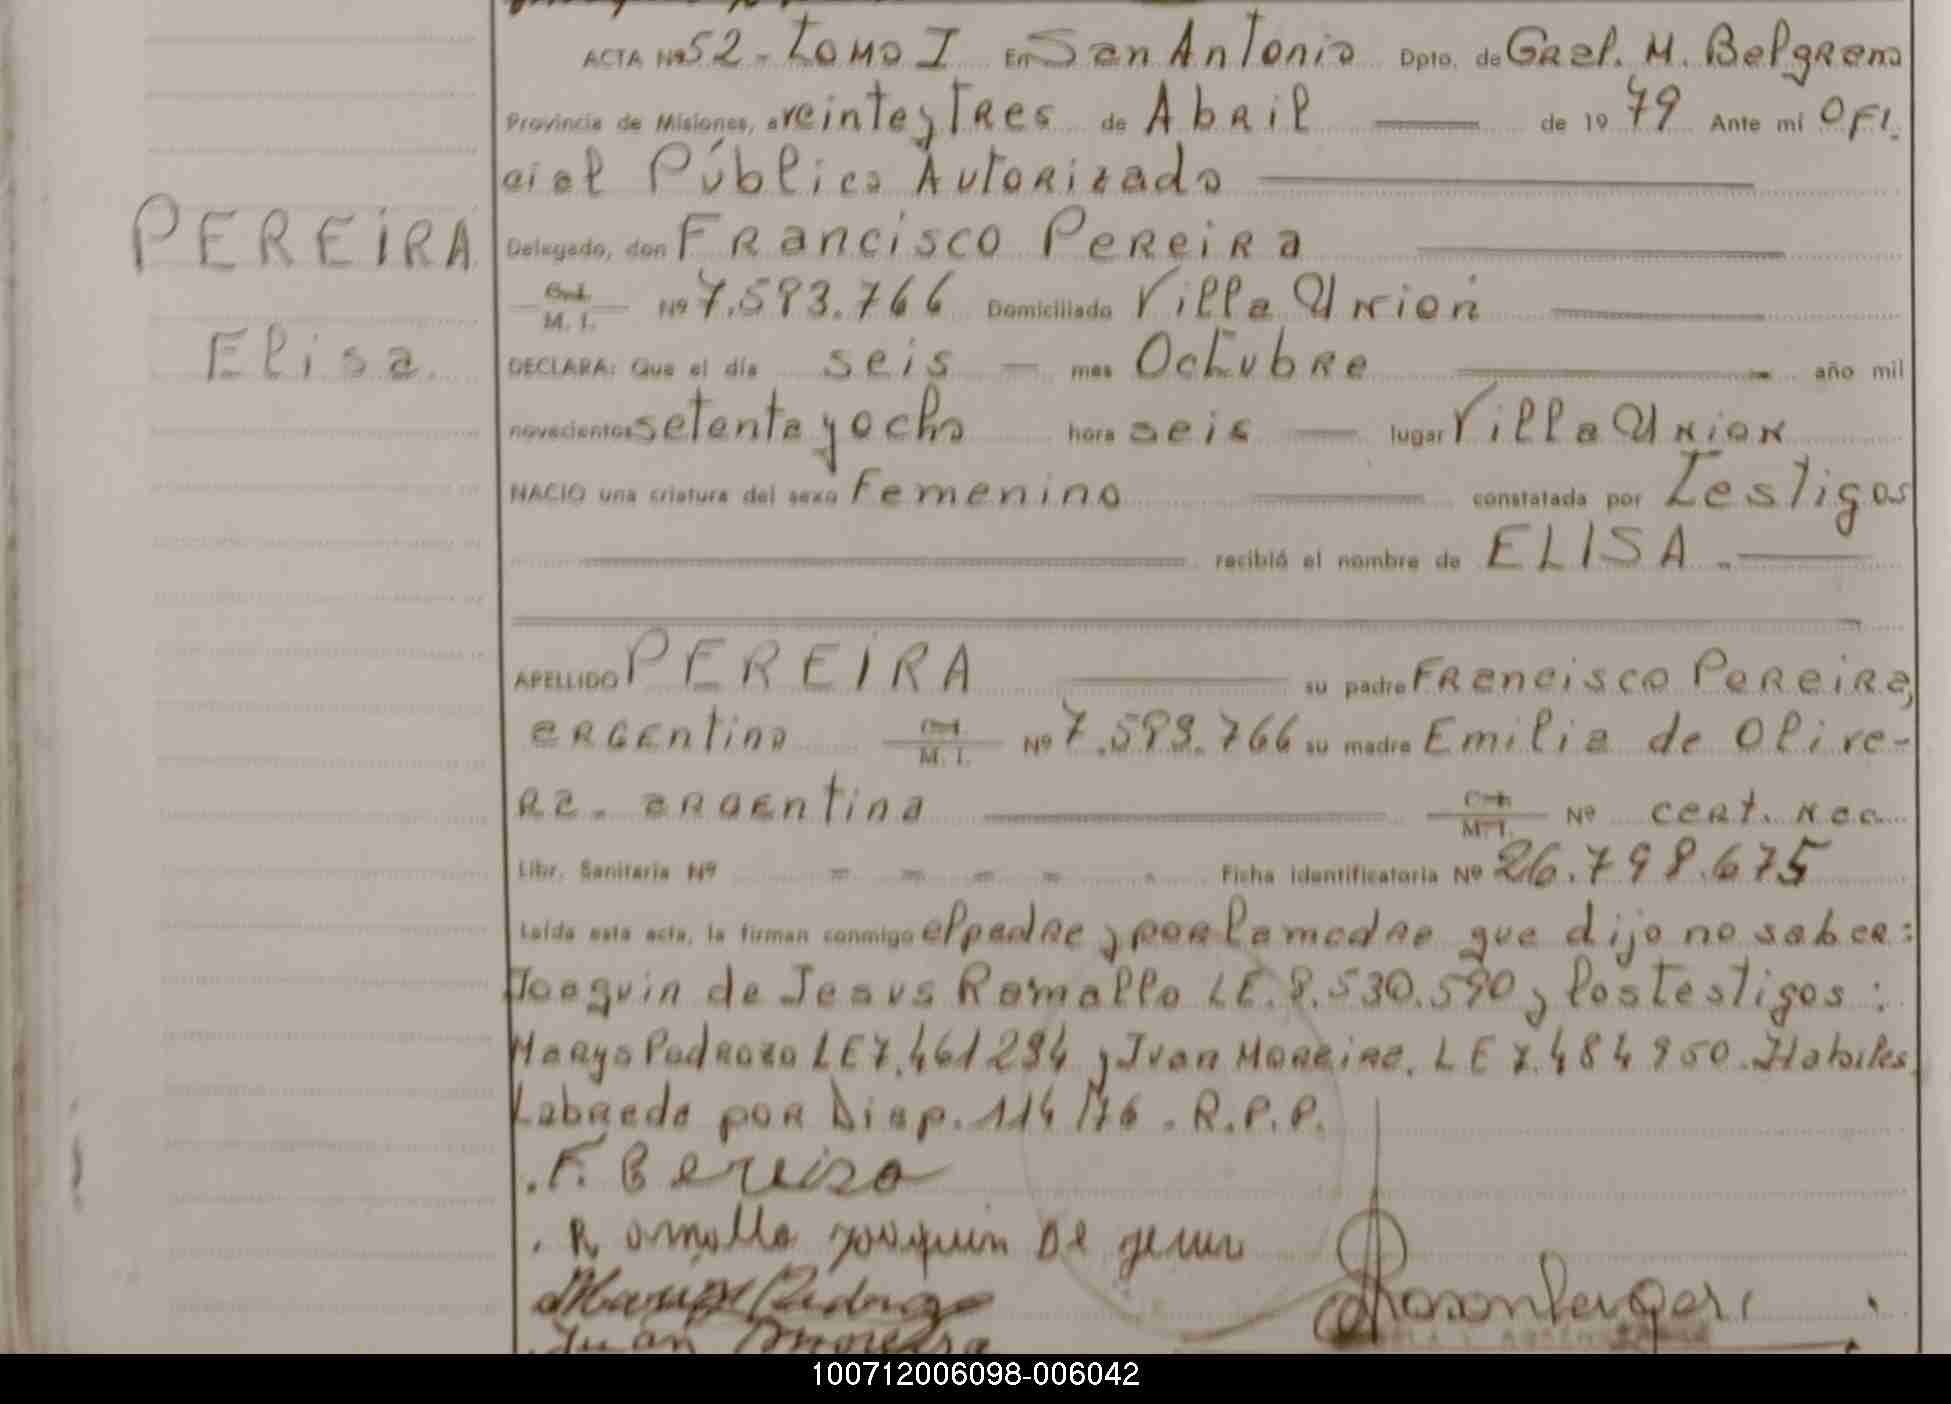 ACTA Nº 52 - Tomo I En San Antonio Dpto. de Gral. M. Belgrano
Provincia de Misiones, a veinte y tres de Abril de 19 79 Ante mí Ofi-
cial Público Autorizado
PEREIRA
Delegado, don Francisco Pereira
M. I. Nº 7.593.766 Domiciliado Villa Union
Elisa
DECLARA: Que el día seis mes Octubre año mil
novecientos setenta y ocho hora seis lugar Villa Union
NACIO una criatura del sexo Femenino constatada por Testigos
recibió el nombre de ELISA.
APELLIDO PEREIRA su padre Francisco Pereira,
argentino M. I. Nº 7.593.766 su madre Emilia de Olive-
ra. argentina M. I. Nº cert. nac.
Libr. Sanitaria Nº - - - - Ficha identificatoria Nº 26.798.675
Leída esta acta, la firman conmigo el padre y por la madre que dijo no saber:
Joaquin de Jesus Ramallo LE. 8.530.590 y los testigos:
Pedrozo LE 7.461294 y Juan Moreira. LE 7.484950. Habiles
Labrada por Disp. 114/76. R.P.P.
. Ramallo Joaquin De
Juan Moreira
100712006098-006042